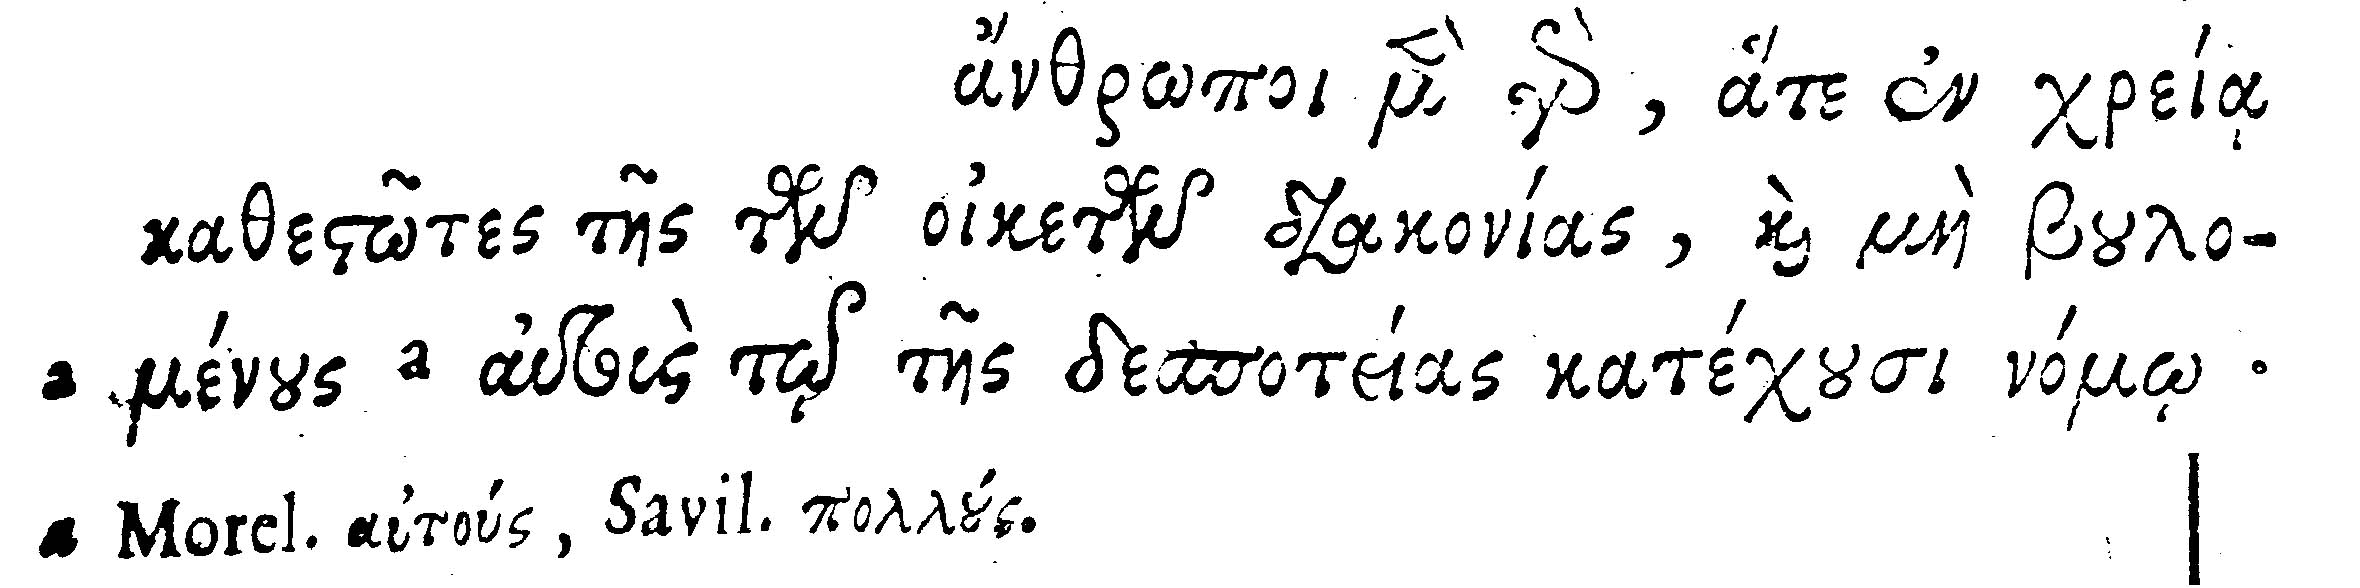 ἄνθρωποι μὲν γὰρ, ἅτε ἐν χρείᾳ
καθεστῶτες τῆς τῶν οἰκετῶν διακονίας, καὶ μὴ βουλο-
a μένους a αὐτοὺς τῷ τῆς δεσποτείας κατέχουσι νόμῳ ·
a Morel. αὐτούς, Savil. πολλούς.